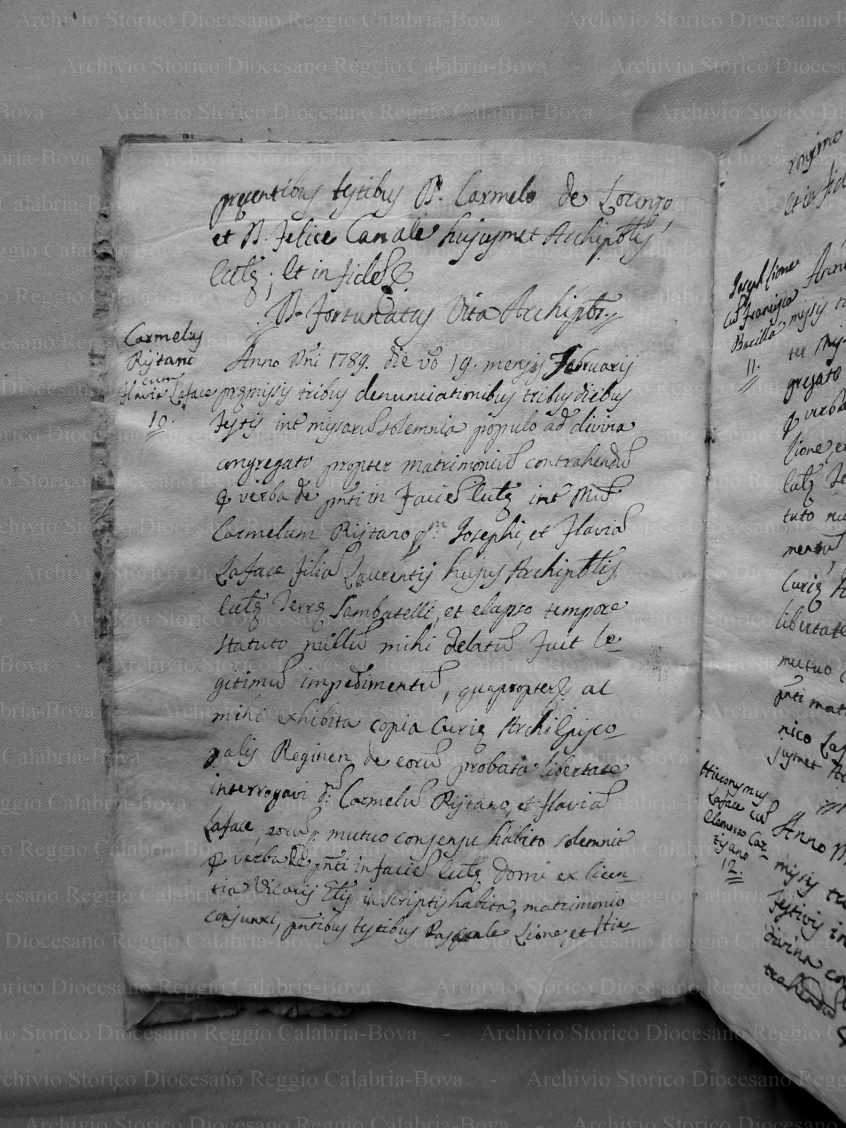 presentibus testibus D. Carmelo de Lorenzo
et D. Felice Canale hujusmet Archiptlis
Eccl(ę; Et in fidem
D. Fortunatus Vita Archipbr.
Carmelus
Rijtano
cum
Flavia Laface
10.
Anno Dni 1789. die vo 19. mensis Februarij
pręmisis tribus denunciationibus tribus diebus
festis int missarum solemnia populo ad divina
congregato propter matrimonium contrahendum
p verba de pnti in Facie Ecclę int
Carmelum Rijtano qm Josephi, et Flaviam
Laface filia Laurentij hujus Archiptlis
Ecclę Terrę Sambatelli, et elapso tempore
statuto nullum mihi delatum fuit le-
gitimum impedimentum, quapropter, at
mihi exhibita copia Curię Archiepisco-
palis Reginen de eorum probata libertate
interrogavi Carmelum Rijtano, et Flaviam
Laface, eorumq mutuo consensu habito solemnit
p verba de pnti in facie Ecclę domi ex licen-
tia Vicarij in scriptis habita, matrimonio
conjunxi, pntibus testibus Pasquale Lione, et Hie-
Joseph Lione
cum Francisca
Bacilla
11.
Hieronymus
Laface cum
Eleonora Car-
tisano
12.
Anno
misis
ter
gregato
p verba
lione
tuto
Curię
libertate
mutuo
pnti
nico
jusmet
Anno
misis
festivis
divina
trahendo